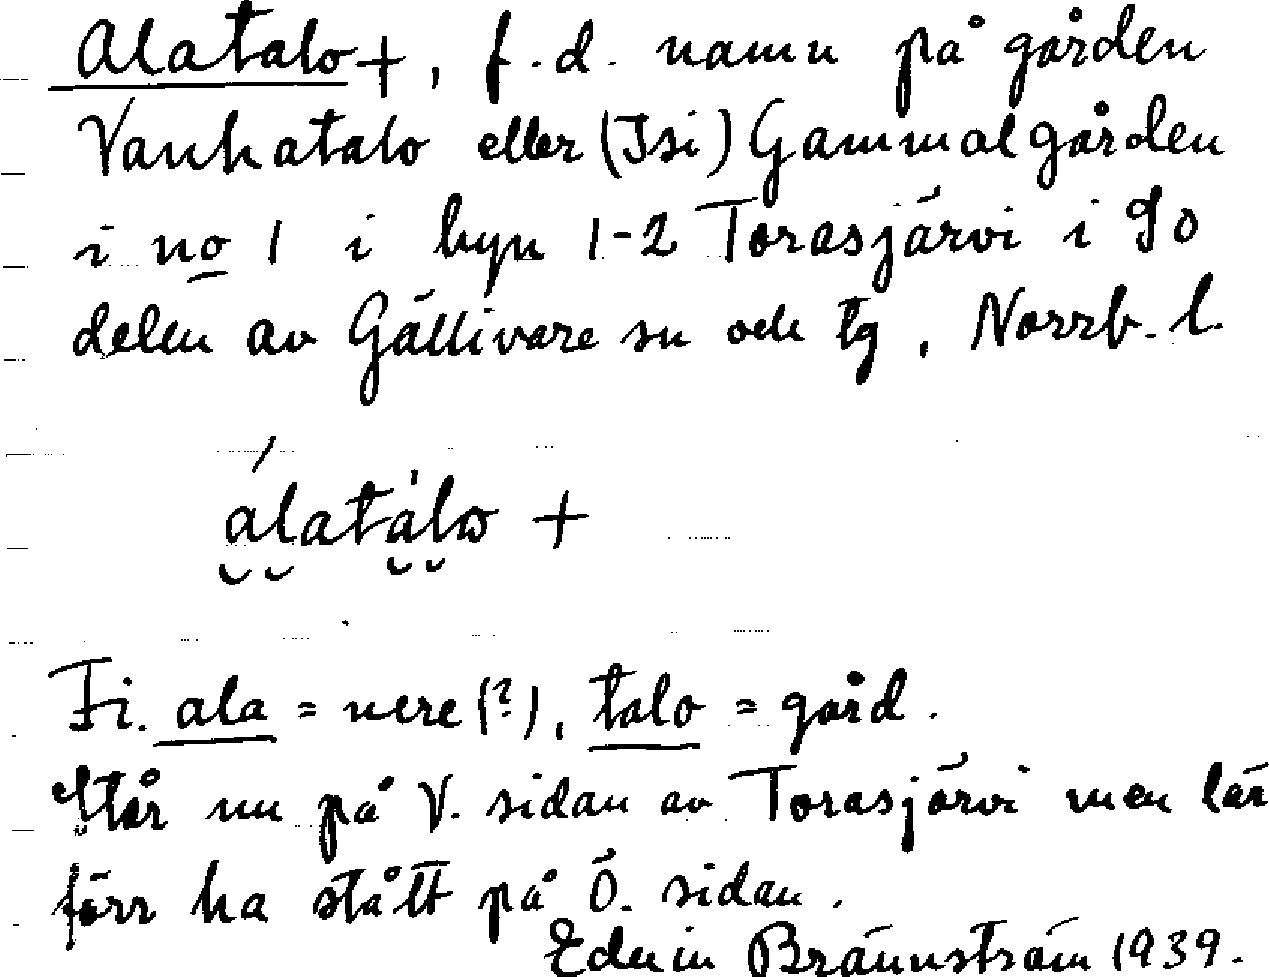 Alatalo+, f.d. namn på gården
Vanhatalo eller (Isi) Gammalgården
i no 1 i byn 1-2 Torasjärvi i SO
delen av Gällivare sn och tg, Norrb. l.
álatàlω +
Fi. ala = nere (?), talo = gård.
Står nu på V. sidan av Torasjärvi men lär
förr ha stått på Ö. sidan.
Edvin Brännström 1939.